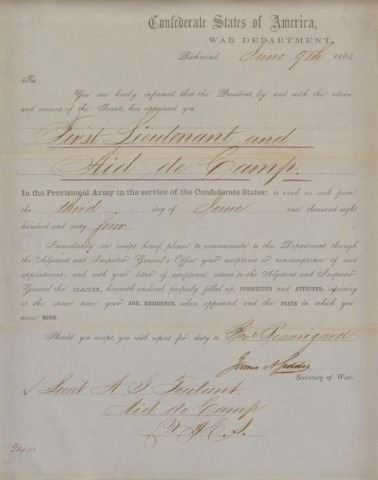 Confederate States of America,
WAR DEPARTMENT,
Richmond, June 9th 1864
Sir:
You are hereby informed that the President, by and with the advice
and consent of the Senate, has appointed you
First Lieutenant and
Aid de Camp.
In the Provisional Army in the service of the Confederate States: to rank as such from
the third day of June one thousand eight
hundred and sixty four.
Immediately on receipt hereof, please to communicate to this Department, through
the Adjutant and Inspector General's Office, your acceptance or non-acceptance of said
appointment; and with your letter of acceptance, return to the Adjutant and Inspector
General the OATH, herewith enclosed, properly filled up, SUBSCRIBED and ATTESTED, reporting
at the same time your AGE, RESIDENCE, when appointed, and the STATE in which you
were BORN.
Should you accept, you will report for duty to Gen. Beauregard
James A Seddon
Secretary of War.
Lieut A. J. Toutant.
Aid de Camp
P. A. C. S.